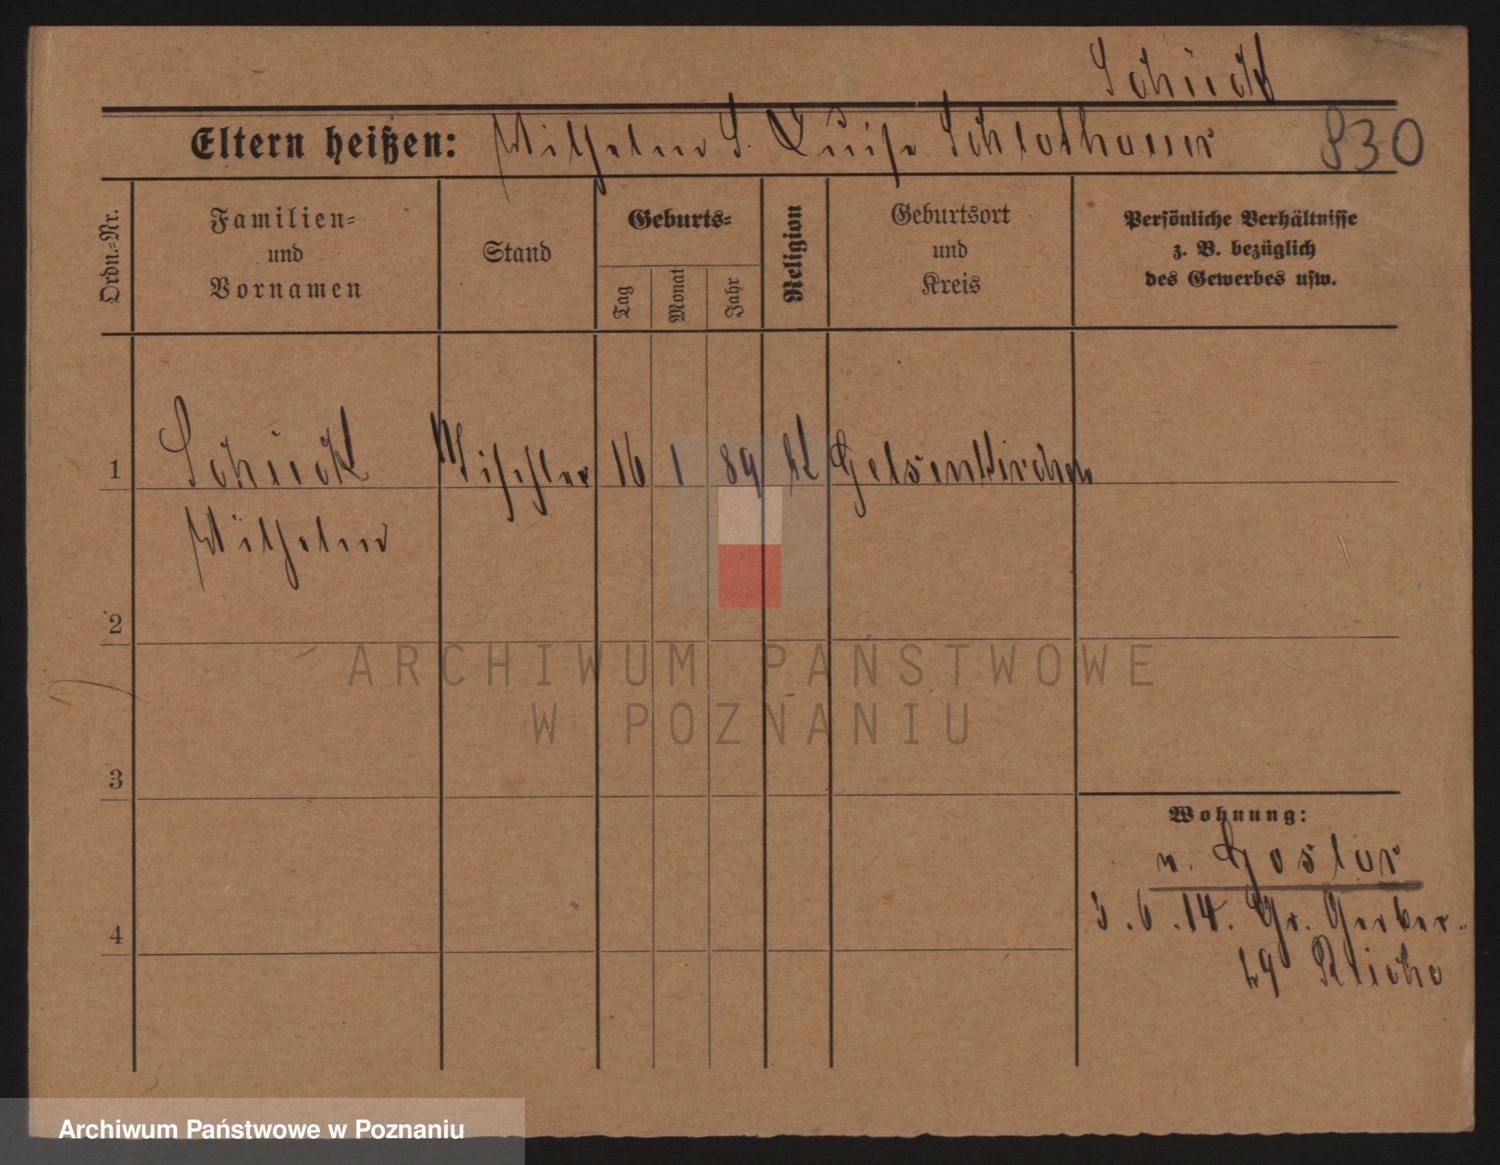 Schück
Eltern heißen: Wilhelm S. Luise Schlothauer 830
Ordn.=Nr.
Familien=
und
Vornamen
Stand
Geburts=
Tag
Monat
Jahr
Religion
Geburtsort
und
Kreis
Persönliche Verhältnisse
z. B. bezüglich
des Gewerbes usw.
1 Schück Tischler 16 1 89 Gelsenkirchen
Wilhelm
2
ARCHIWUM PAŃSTWOWE
W POZNANIU
3
Wohnung:
v. Goslar
3.6.14. Gr. Gerber-
4
Archiwum Państwowe w Poznaniu